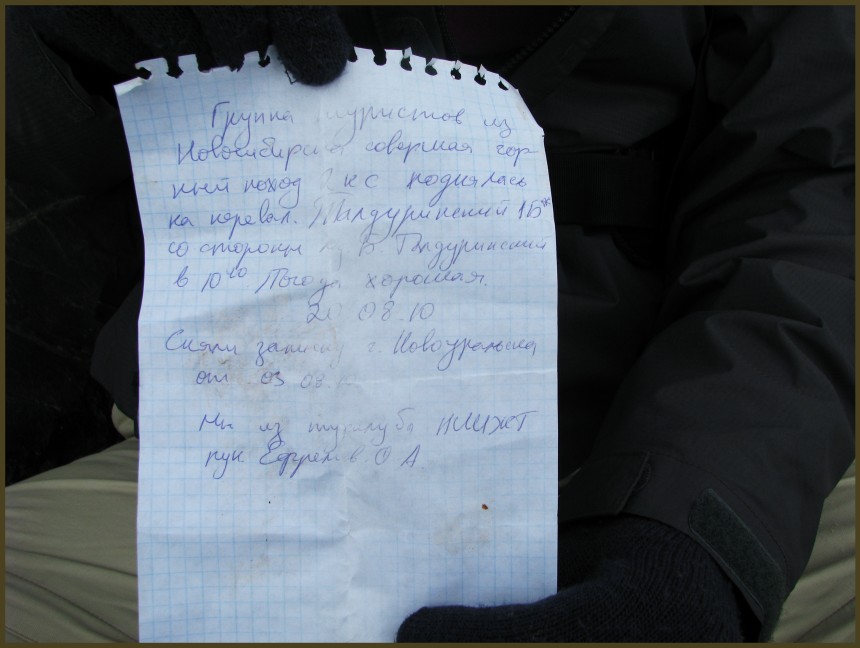 Группа туристов из
Новосибирска совершая гор
ный поход 2 кс поднялась
на перевал. Талдуринский 1Б*
со стороны Талдуринский
в 10⁴⁰ Погода хорошая.
20 08.10
Сняли записку г. Новоуральска
от 03 08.
Мы из турклуба НИИЖТ
рук Ефремов С А